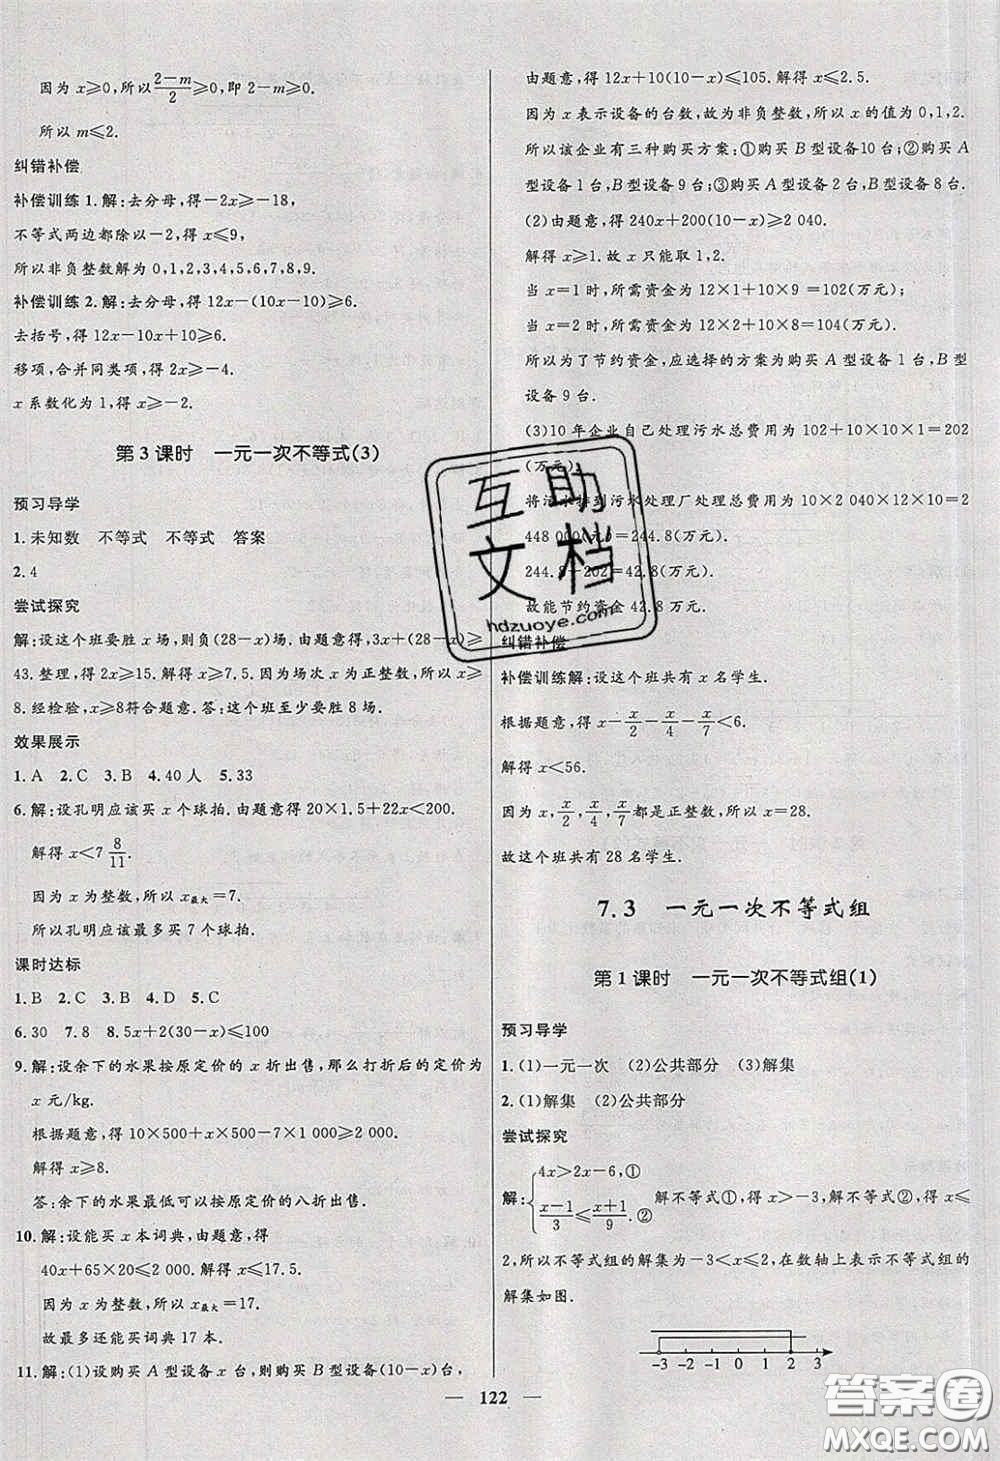 因为 x≥0,所以(2-m)/2≥0,即 2-m≥0.
所以 m≤2.
纠错补偿
补偿训练 1.解:去分母,得 -2x≥-18,
不等式两边都除以-2,得 x≤9,
所以非负整数解为 0,1,2,3,4,5,6,7,8,9.
补偿训练 2.解:去分母,得 12x-(10x-10)≥6.
去括号,得 12x-10x+10≥6.
移项,合并同类项,得 2x≥-4.
x 系数化为 1,得 x≥-2.
第 3 课时 一元一次不等式(3)
预习导学
1.未知数 不等式 不等式 答案
2.4
尝试探究
解:设这个班要胜 x 场,则负(28-x)场.由题意得,3x+(28-x)≥
43.整理,得 2x≥15.解得 x≥7.5.因为场次 x 为正整数,所以 x≥
8.经检验,x≥8符合题意.答:这个班至少要胜 8 场.
效果展示
1.A 2.C 3.B 4.40 人 5.33
6.解:设孔明应该买 x 个球拍.由题意得 20×1.5+22x<200.
解得 x<7 8/11.
因为 x 为整数,所以 x最大=7.
所以孔明应该最多买 7 个球拍.
课时达标
1.B 2.C 3.A 4.D 5.C
6.30 7.8 8.5x+2(30-x)≤100
9.解:设余下的水果按原定价的 x 折出售,那么打折后的定价为
x 元/kg.
根据题意,得 10×500+x×500-1 000≥2 000.
解得 x≥8.
答:余下的水果最低可以按原定价的八折出售.
10.解:设能买 x 本词典,由题意,得
40x+65×20≤2 000.解得 x≤17.5.
因为 x 为整数,所以 x最大=17.
故最多还能买词典 17 本.
11.解:(1)设购买 A 型设备 x 台,则购买 B 型设备(10-x)台,
由题意,得 12x+10(10-x)≤105.解得 x≤2.5.
因为 x 表示设备的台数,故为非负整数,所以 x 的值为 0,1,2.
所以该企业有三种购买方案:①购买 B 型设备10台;②购买 A
型设备 1 台,B 型设备 9 台;③购买 A 型设备 2 台,B 型设备 8 台.
(2)由题意,得 240x+200(10-x)≥2 040.
解得 x≥1.故 x 只能取 1,2.
当 x=1 时,所需资金为 12×1+10×9=102(万元);
当 x=2 时,所需资金为 12×2+10×8=104(万元).
所以为了节约资金,应选择的方案为购买 A 型设备 1 台、B 型
设备 9 台.
(3)10 年企业自己处理污水总费用为 102+10×10×1=202
(万元),
将污水排到污水处理厂处理总费用为 10×2 040×12×10=2
448 000(元)=244.8(万元).
244.8-202=42.8(万元).
故能节约资金 42.8 万元.
纠错补偿
补偿训练解:设这个班共有 x 名学生.
根据题意,得 x-x/2-x/4-x/7<6.
解得 x<56.
因为 x,x/2,x/4,x/7都是正整数,所以 x=28.
故这个班共有 28 名学生.
7.3 一元一次不等式组
第 1 课时 一元一次不等式组(1)
预习导学
1.(1)一元一次 (2)公共部分 (3)解集
2.(1)解集 (2)公共部分
尝试探究
解:{4x>2x-6,① (x-1)/3≤(x+1)/9.② 解不等式①,得 x>-3,解不等式②,得 x≤
2,所以不等式组的解集为-3<x≤2,在数轴上表示不等式组的
解集如图.
-3 -2 -1 0 1 2 3
122
互助文档
hdzuoye.com
答案卷
MXQE.COM